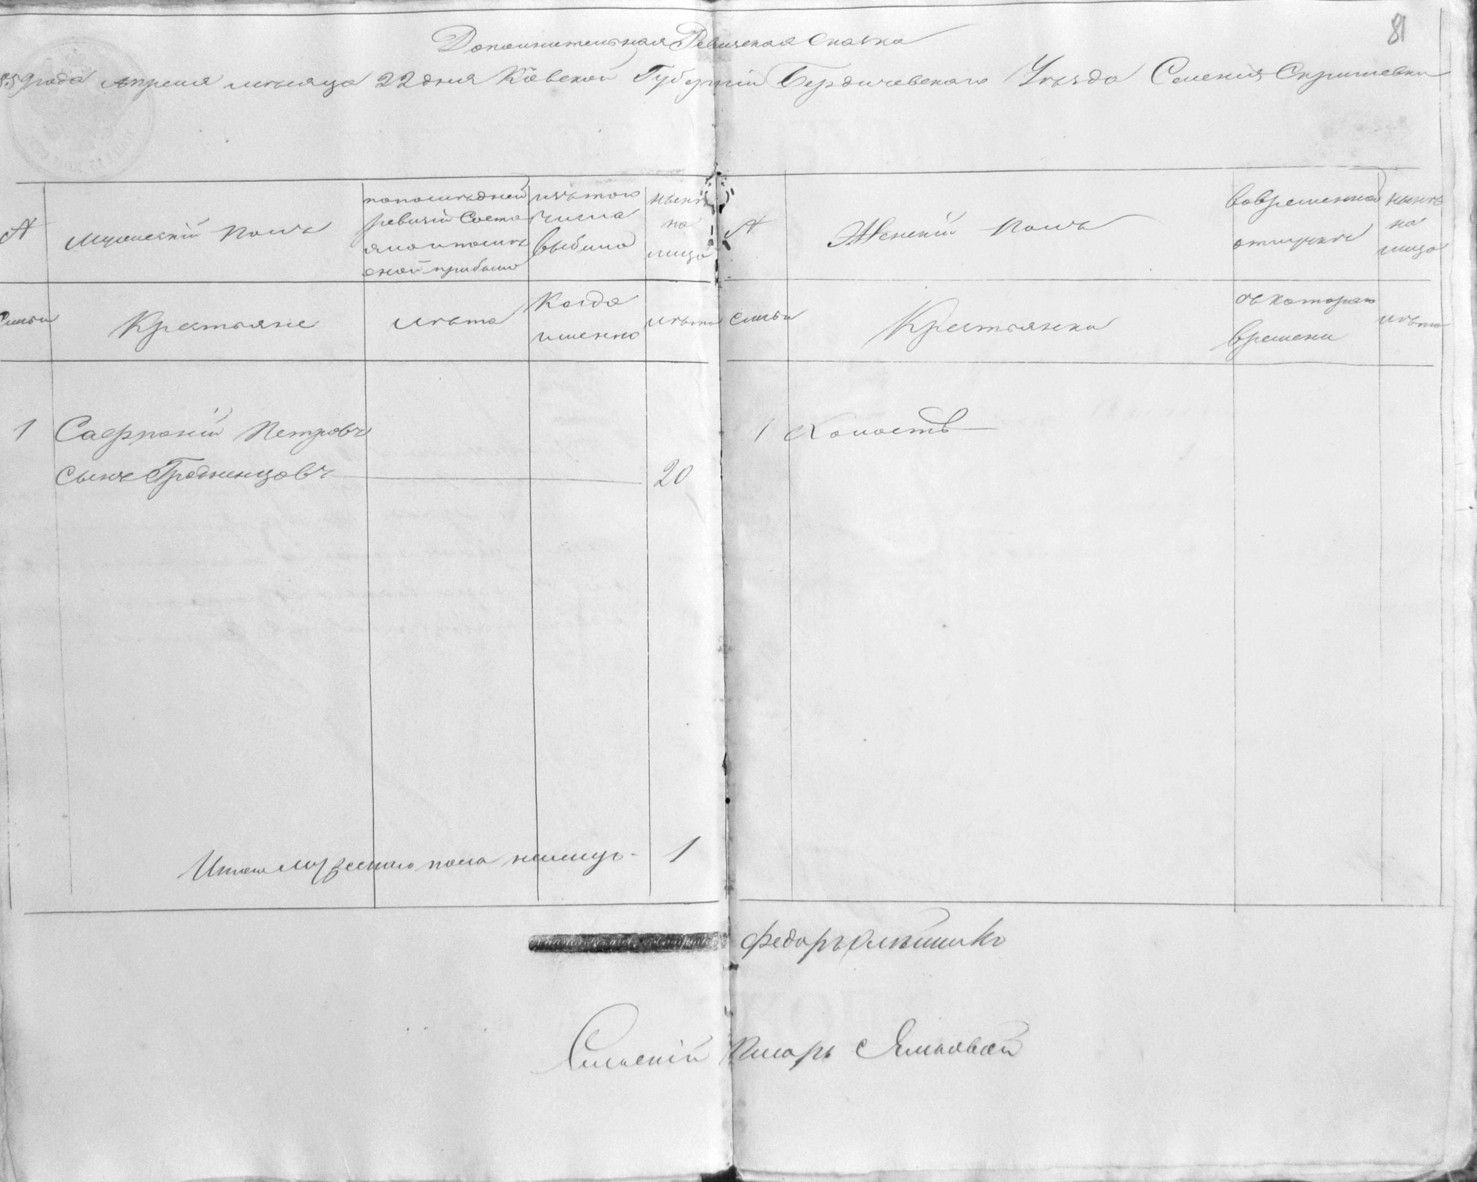 81
Дополнительная Ревизская сказка
1859 года апреля месяца 22 дня Кіевской Губерніи Бердичевскаго Уѣзда Селенія Скригалевки
№
Мужескій полъ
попослѣдней
ревизіи состо
яло и послѣ
оной прибыло
изъ того
числа
выбыло
нынѣ
на
лицо
№
Женскій полъ
вовременной
отлучкѣ
нынѣ
на
лицо
Семьи
Крестьяне
лѣта
Когда
именно
лѣта
Семьи
Крестьянки
съ котораго
времени
лѣта
1 Сафроній Петровъ
сынъ 20
1 Холостъ
Итого мужескаго пола налицо 1
Федоръ
Сельскій Писарь